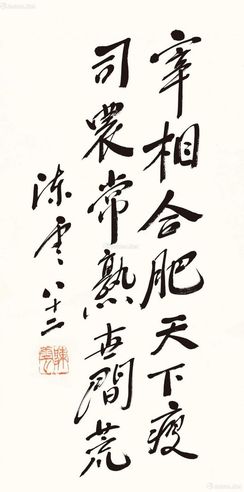 宰相合肥天下瘦
司農常熟世間荒
陈雲八十二
陳雲